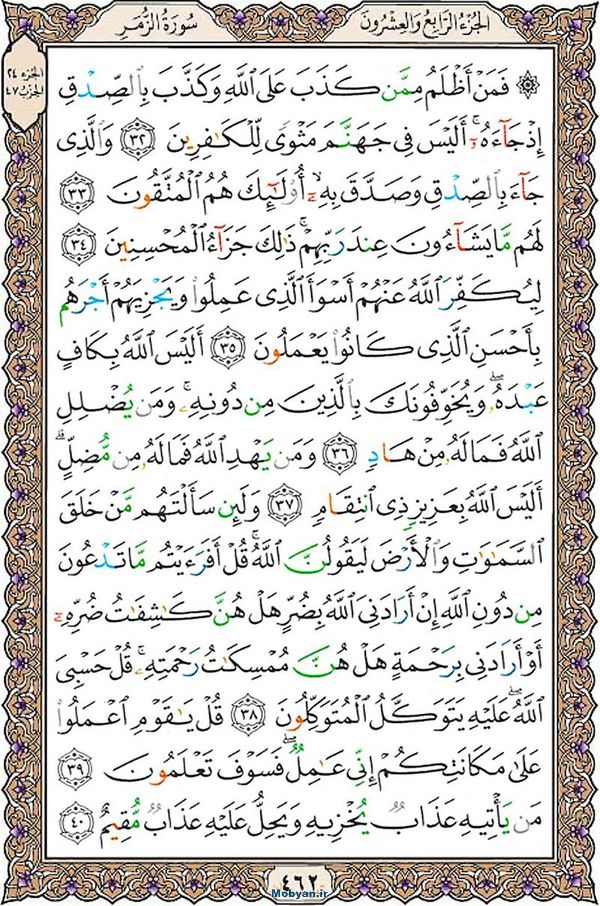 الجُزءُ الرّابِعُ وَالعِشرُونَ
سُورَةُ الزُّمَر
الجزء ٢٤
الحزب ٤٧
۞ فَمَنْ أَظْلَمُ مِمَّن كَذَبَ عَلَى اللَّهِ وَكَذَّبَ بِالصِّدْقِ
إِذْ جَاءَهُۥٓ ۚ أَلَيْسَ فِى جَهَنَّمَ مَثْوًى لِّلْكَـٰفِرِينَ ﴿٣٢﴾ وَالَّذِى
جَاءَ بِالصِّدْقِ وَصَدَّقَ بِهِۦٓ ۙ أُوْلَـٰٓئِكَ هُمُ الْمُتَّقُونَ ﴿٣٣﴾
لَهُم مَّا يَشَاءُونَ عِندَ رَبِّهِمْ ۚ ذَٰلِكَ جَزَاءُ الْمُحْسِنِينَ ﴿٣٤﴾
لِيُكَفِّرَ اللَّهُ عَنْهُمْ أَسْوَأَ الَّذِى عَمِلُوا وَيَجْزِيَهُمْ أَجْرَهُم
بِأَحْسَنِ الَّذِى كَانُوا يَعْمَلُونَ ﴿٣٥﴾ أَلَيْسَ اللَّهُ بِكَافٍ
عَبْدَهُۥ ۖ وَيُخَوِّفُونَكَ بِالَّذِينَ مِن دُونِهِۦ ۚ وَمَن يُضْلِلِ
اللَّهُ فَمَا لَهُۥ مِنْ هَادٍ ﴿٣٦﴾ وَمَن يَهْدِ اللَّهُ فَمَا لَهُۥ مِن مُّضِلٍّ ۗ
أَلَيْسَ اللَّهُ بِعَزِيزٍ ذِى انتِقَامٍ ﴿٣٧﴾ وَلَئِن سَأَلْتَهُم مَّنْ خَلَقَ
السَّمَـٰوَٰتِ وَالْأَرْضَ لَيَقُولُنَّ اللَّهُ ۚ قُلْ أَفَرَءَيْتُم مَّا تَدْعُونَ
مِن دُونِ اللَّهِ إِنْ أَرَادَنِىَ اللَّهُ بِضُرٍّ هَلْ هُنَّ كَـٰشِفَـٰتُ ضُرِّهِۦٓ
أَوْ أَرَادَنِى بِرَحْمَةٍ هَلْ هُنَّ مُمْسِكَـٰتُ رَحْمَتِهِۦ ۚ قُلْ حَسْبِىَ
اللَّهُ ۖ عَلَيْهِ يَتَوَكَّلُ الْمُتَوَكِّلُونَ ﴿٣٨﴾ قُلْ يَـٰقَوْمِ اعْمَلُوا
عَلَىٰ مَكَانَتِكُمْ إِنِّى عَـٰمِلٌ ۖ فَسَوْفَ تَعْلَمُونَ ﴿٣٩﴾
مَن يَأْتِيهِ عَذَابٌ يُخْزِيهِ وَيَحِلُّ عَلَيْهِ عَذَابٌ مُّقِيمٌ ﴿٤٠﴾
٤٦٢
Mobyan.ir